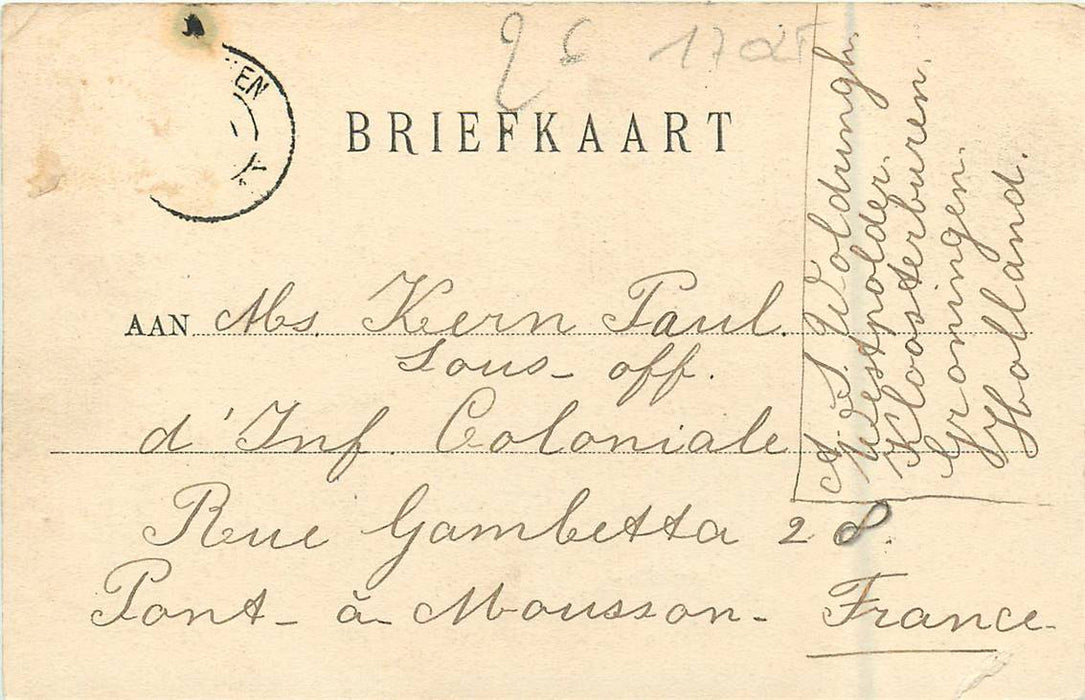 26 17
EN
BRIEFKAART
AAN Ms. Kern Paul.
Sous-off.
d'Inf. Coloniale
Rue Gambetta 28.
Pont-à-Mousson-France-
A. S. Woldringh.
Westpolder.
Kloosterburen.
Groningen.
Holland.